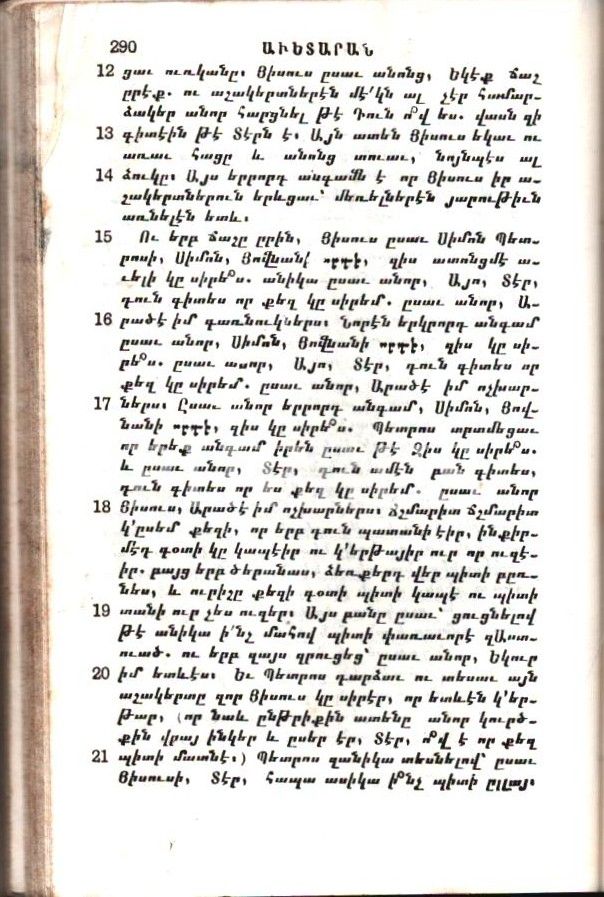 290 ԱՒԵՏԱՐԱՆ
12 ցաւ ուռկանը։ Յիսուս ըսաւ անոնց, Եկէք ճաշ
ըրէք. ու աշակերտներէն մէ՛կն ալ չէր համար-
ձակեր անոր հարցնել թէ Դուն ո՞վ ես. վասն զի
13 գիտէին թէ Տէրն է։ Այն ատեն Յիսուս եկաւ ու
առաւ հացը և անոնց տուաւ, նոյնպէս ալ
14 ձուկը։ Այս երրորդ անգամն է որ Յիսուս իր ա-
շակերտներուն երևցաւ՝ մեռելներէն յարութիւն
առնելէն ետև։
15 Ու երբ ճաշը ըրին, Յիսուս ըսաւ Սիմոն Պետ-
րոսի, Սիմոն, Յովնանի որդի, զիս ատոնցմէ ա-
ւելի կը սիրե՞ս. անիկա ըսաւ անոր, Այո, Տէր,
դուն գիտես որ քեզ կը սիրեմ. ըսաւ անոր, Ա-
16 րածէ իմ գառնուկներս։ Նորէն երկրորդ անգամ
ըսաւ անոր, Սիմոն, Յովնանի որդի, զիս կը սի-
րե՞ս. ըսաւ անոր, Այո, Տէր, դուն գիտես որ
քեզ կը սիրեմ. ըսաւ անոր, Արածէ իմ ոչխար-
17 ներս։ Ըսաւ անոր երրորդ անգամ, Սիմոն, Յով-
նանի որդի, զիս կը սիրե՞ս. Պետրոս տրտմեցաւ
որ երեք անգամ իրեն ըսաւ թէ Զիս կը սիրե՞ս.
և ըսաւ անոր, Տէր, դուն ամէն բան գիտես,
դուն գիտես որ ես քեզ կը սիրեմ. ըսաւ անոր
18 Յիսուս, Արածէ իմ ոչխարներս։ Ճշմարիտ ճշմարիտ
կ’ըսեմ քեզի, որ երբ դուն պատանի էիր, ինքիր-
մէդ գօտի կը կապէիր ու կ’երթայիր ուր որ ուզէ-
իր. բայց երբ ծերանաս, ձեռքերդ վեր պիտի բըռ-
նես, և ուրիշը քեզի գօտի պիտի կապէ ու պիտի
19 տանի ուր չես ուզեր։ Այս բանը ըսաւ՝ ցուցնելով
թէ անիկա ի՛նչ մահով պիտի փառաւորէ զԱստ-
ուած. ու երբ զայս զրուցեց՝ ըսաւ անոր, Եկուր
20 իմ ետևէս։ Եւ Պետրոս դարձաւ ու տեսաւ այն
աշակերտը զոր Յիսուս կը սիրէր, որ ետևէն կ’եր-
թար, (որ նաև ընթրիքին ատենը անոր կուրծ-
քին վրայ ինկեր և ըսեր էր, Տէր, ո՞վ է որ քեզ
21 պիտի մատնէ։) Պետրոս զանիկա տեսնելով՝ ըսաւ
Յիսուսի, Տէր, հապա ասիկա ի՞նչ պիտի ըլլայ։